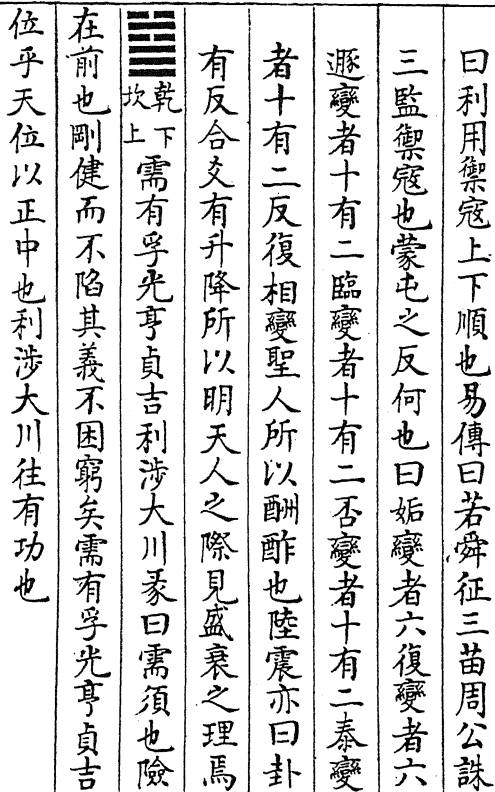 曰利用禦寇上下順也易傳曰若舜征三苗周公誅
三監禦寇也蒙屯之反何也曰姤變者六復變者六
遯變者十有二臨變者十有二否變者十有二泰變
者十有二反復相變聖人所以酬酢也陸震亦曰卦
有反合爻有升降所以明天人之際見盛衰之理焉
乾下坎上需有孚光亨貞吉利涉大川彖曰需須也險
在前也剛健而不陷其義不困窮矣需有孚光亨貞吉
位乎天位以正中也利涉大川往有功也